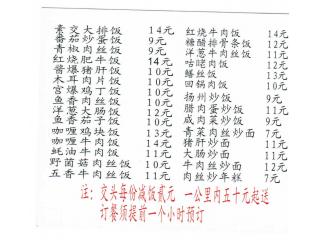 素交大排饭 14元
番茄炒蛋饭 9元
青椒肉丝饭 9元
红烧肥牛饭 14元
酱爆猪肝饭 10元
木耳肉片饭 10元
宫爆鸡丁饭 10元
鱼香肉丝饭 10元
洋葱大肠饭 12元
鱼香茄子饭 10元
咖喱鸡块饭 13元
咖喱牛肉饭 14元
蚝油牛肉饭 14元
野菌菇牛肉丝饭 11元
五香牛肉丝饭
红烧牛肉饭 14元
糖醋排骨饭 12元
洋葱牛肉丝饭 11元
咕咾肉饭 12元
鳝丝饭 13元
回锅肉饭 10元
扬州炒饭 9元
腊肉蛋炒饭 11元
咸肉菜炒饭 9元
青菜肉丝炒面 7元
猪肝炒面 11元
大肠炒面 11元
肉丝炒面 11元
肉丝炒年糕 7元
注:交头每份减饭贰元 一公里内五十元起送
订餐须提前一个小时预订